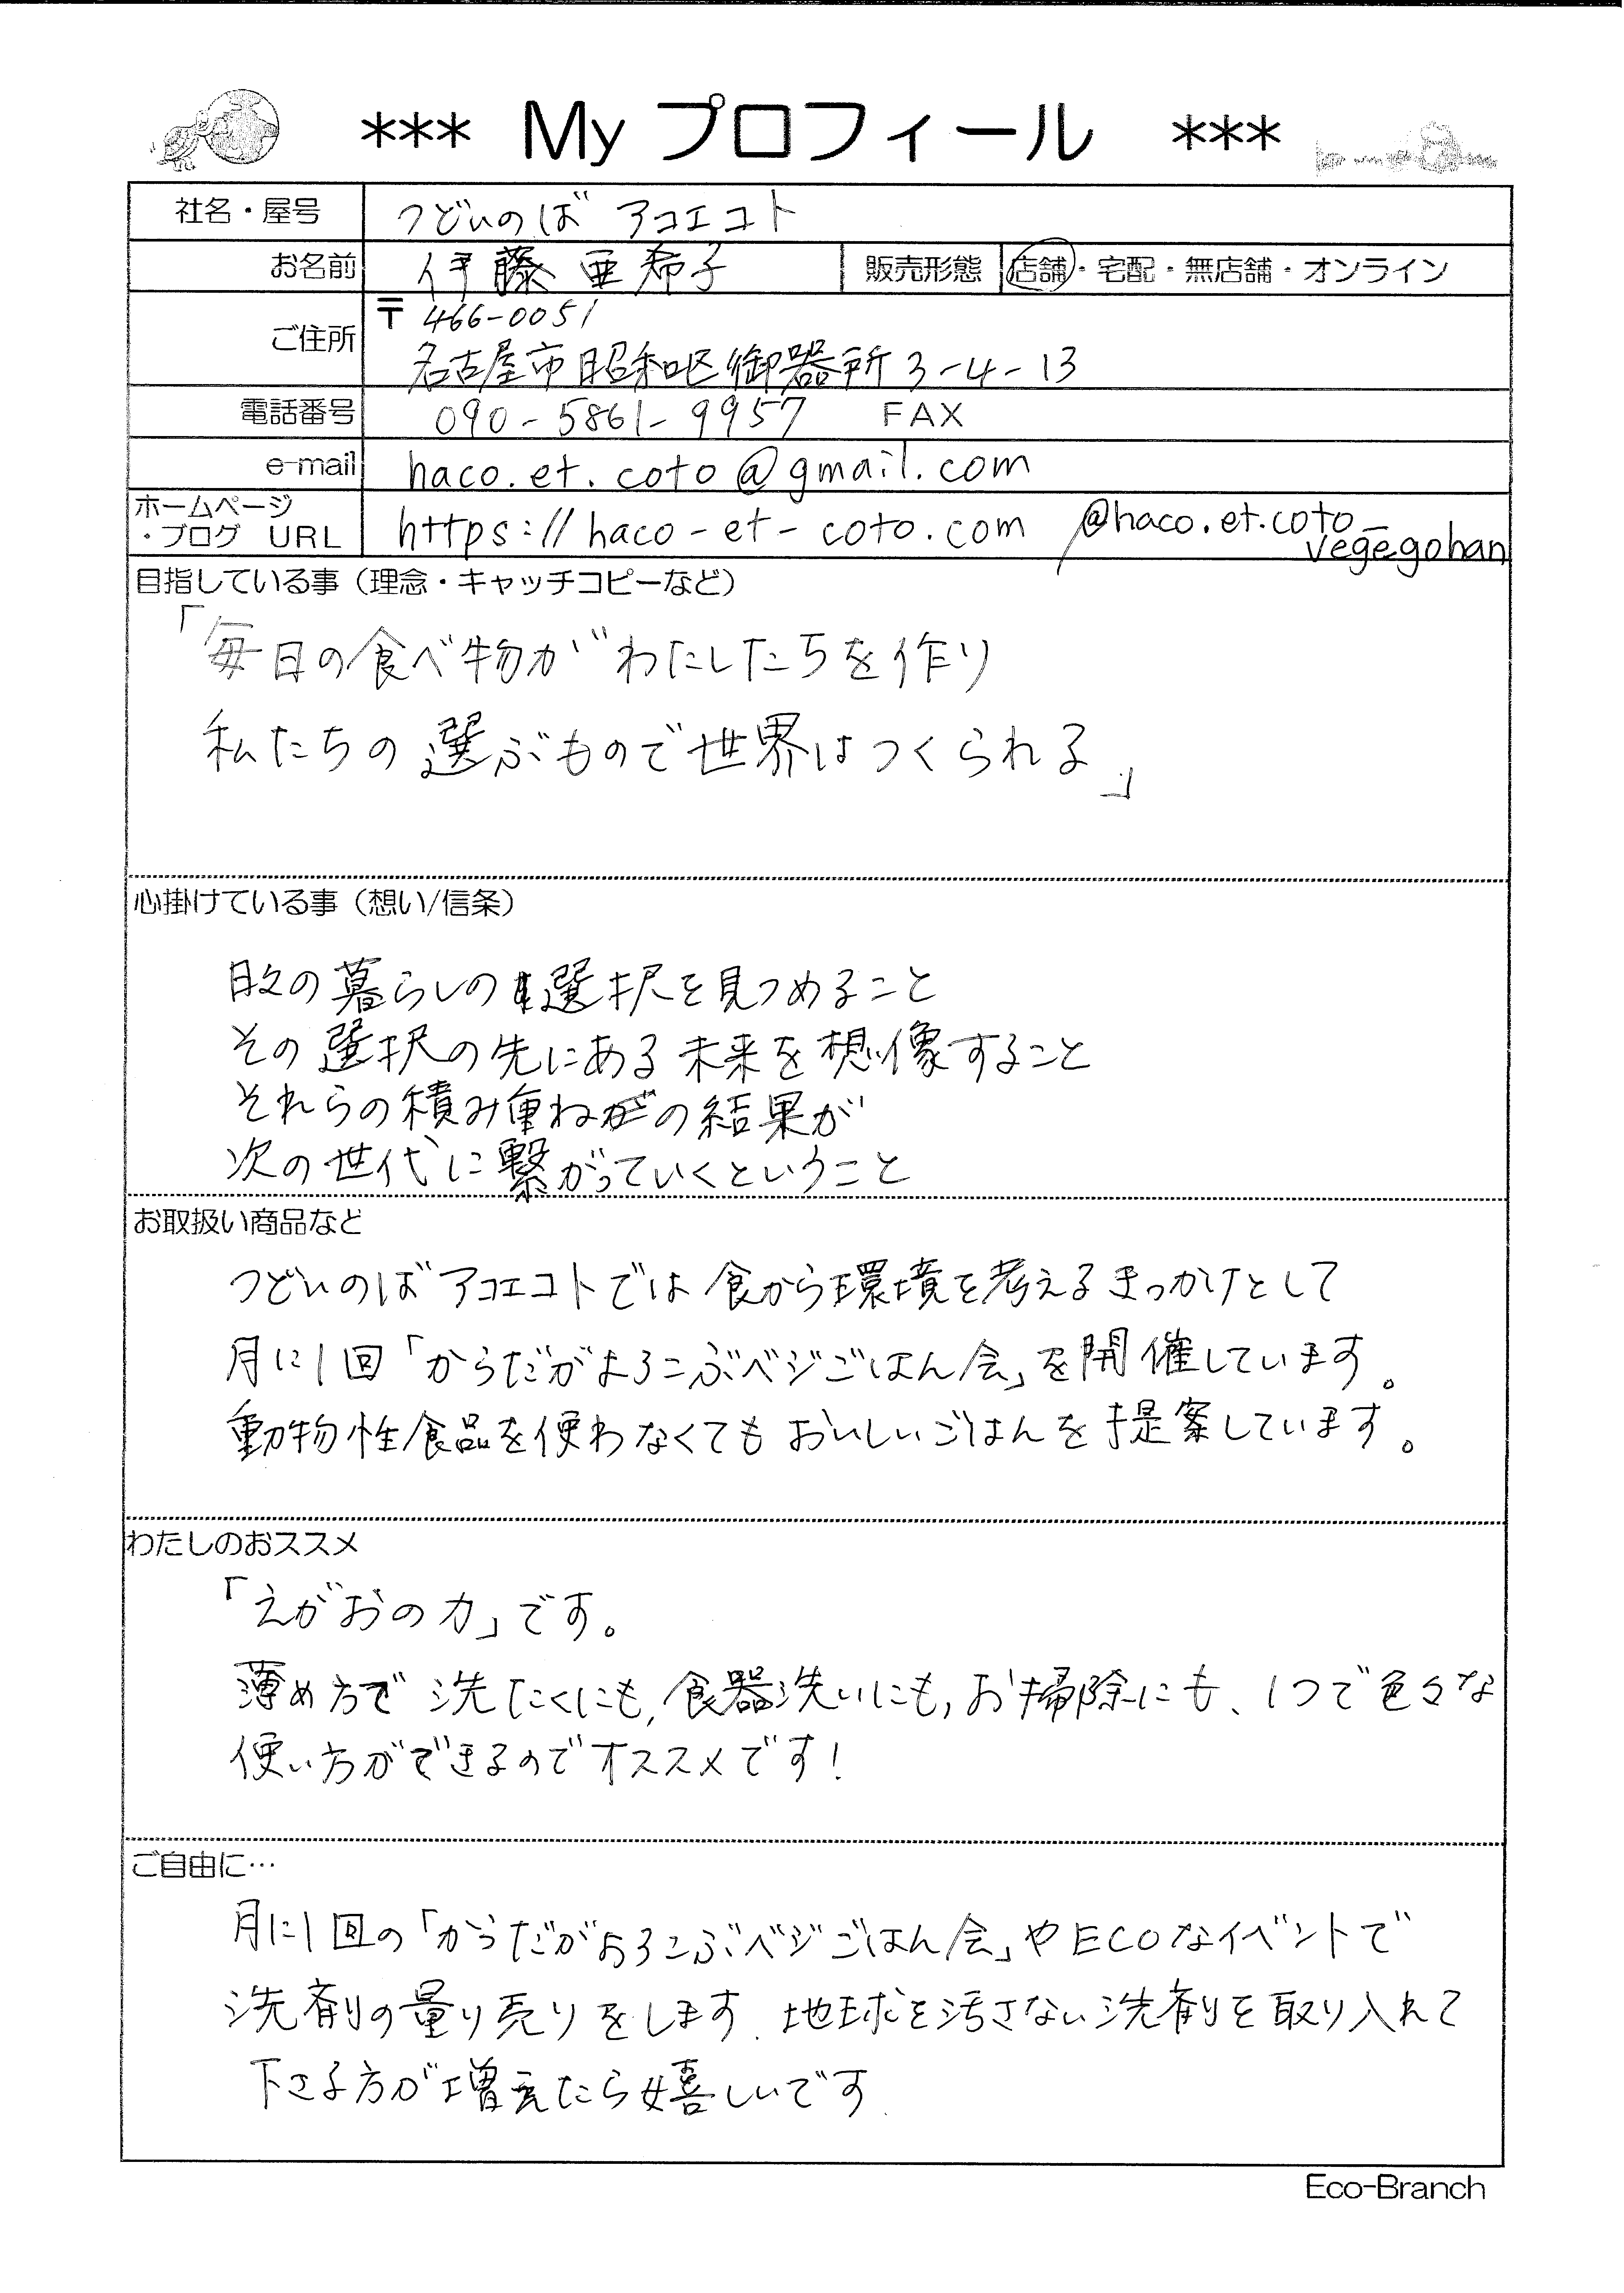 *** My プロフィール ***
社名・屋号 つどいのば アコエコト
お名前 伊藤 亜希子 販売形態 店舗・宅配・無店舗・オンライン
ご住所 〒 466-0051
名古屋市昭和区御器所3-4-13
電話番号 090-5861-9957 FAX
e-mail haco.et.coto@gmail.com
ホームページ
・ブログ URL https://haco-et-coto.com @haco.et.coto_
vegegohan
目指している事（理念・キャッチコピーなど）
「毎日の食べ物がわたしたちを作り
私たちの選ぶもので世界はつくられる」
心掛けている事（想い/信条）
日々の暮らしの選択を見つめること
その選択の先にある未来を想像すること
それらの積み重ねの結果が
次の世代に繋がっていくということ
お取扱い商品など
つどいのばアコエコトでは食から環境を考えるきっかけとして
月に1回「からだがよろこぶベジごはん会」を開催しています。
動物性食品を使わなくてもおいしいごはんを提案しています。
わたしのおススメ
「えがおの力」です。
薄め方で洗たくにも,食器洗いにも,お掃除にも、1つで色々な
使い方ができるのでオススメです!
ご自由に…
月に1回の「からだがよろこぶベジごはん会」やECOなイベントで
洗剤の量り売りをします.地球を汚さない洗剤を取り入れて
下さる方が増えたら嬉しいです.
Eco-Branch